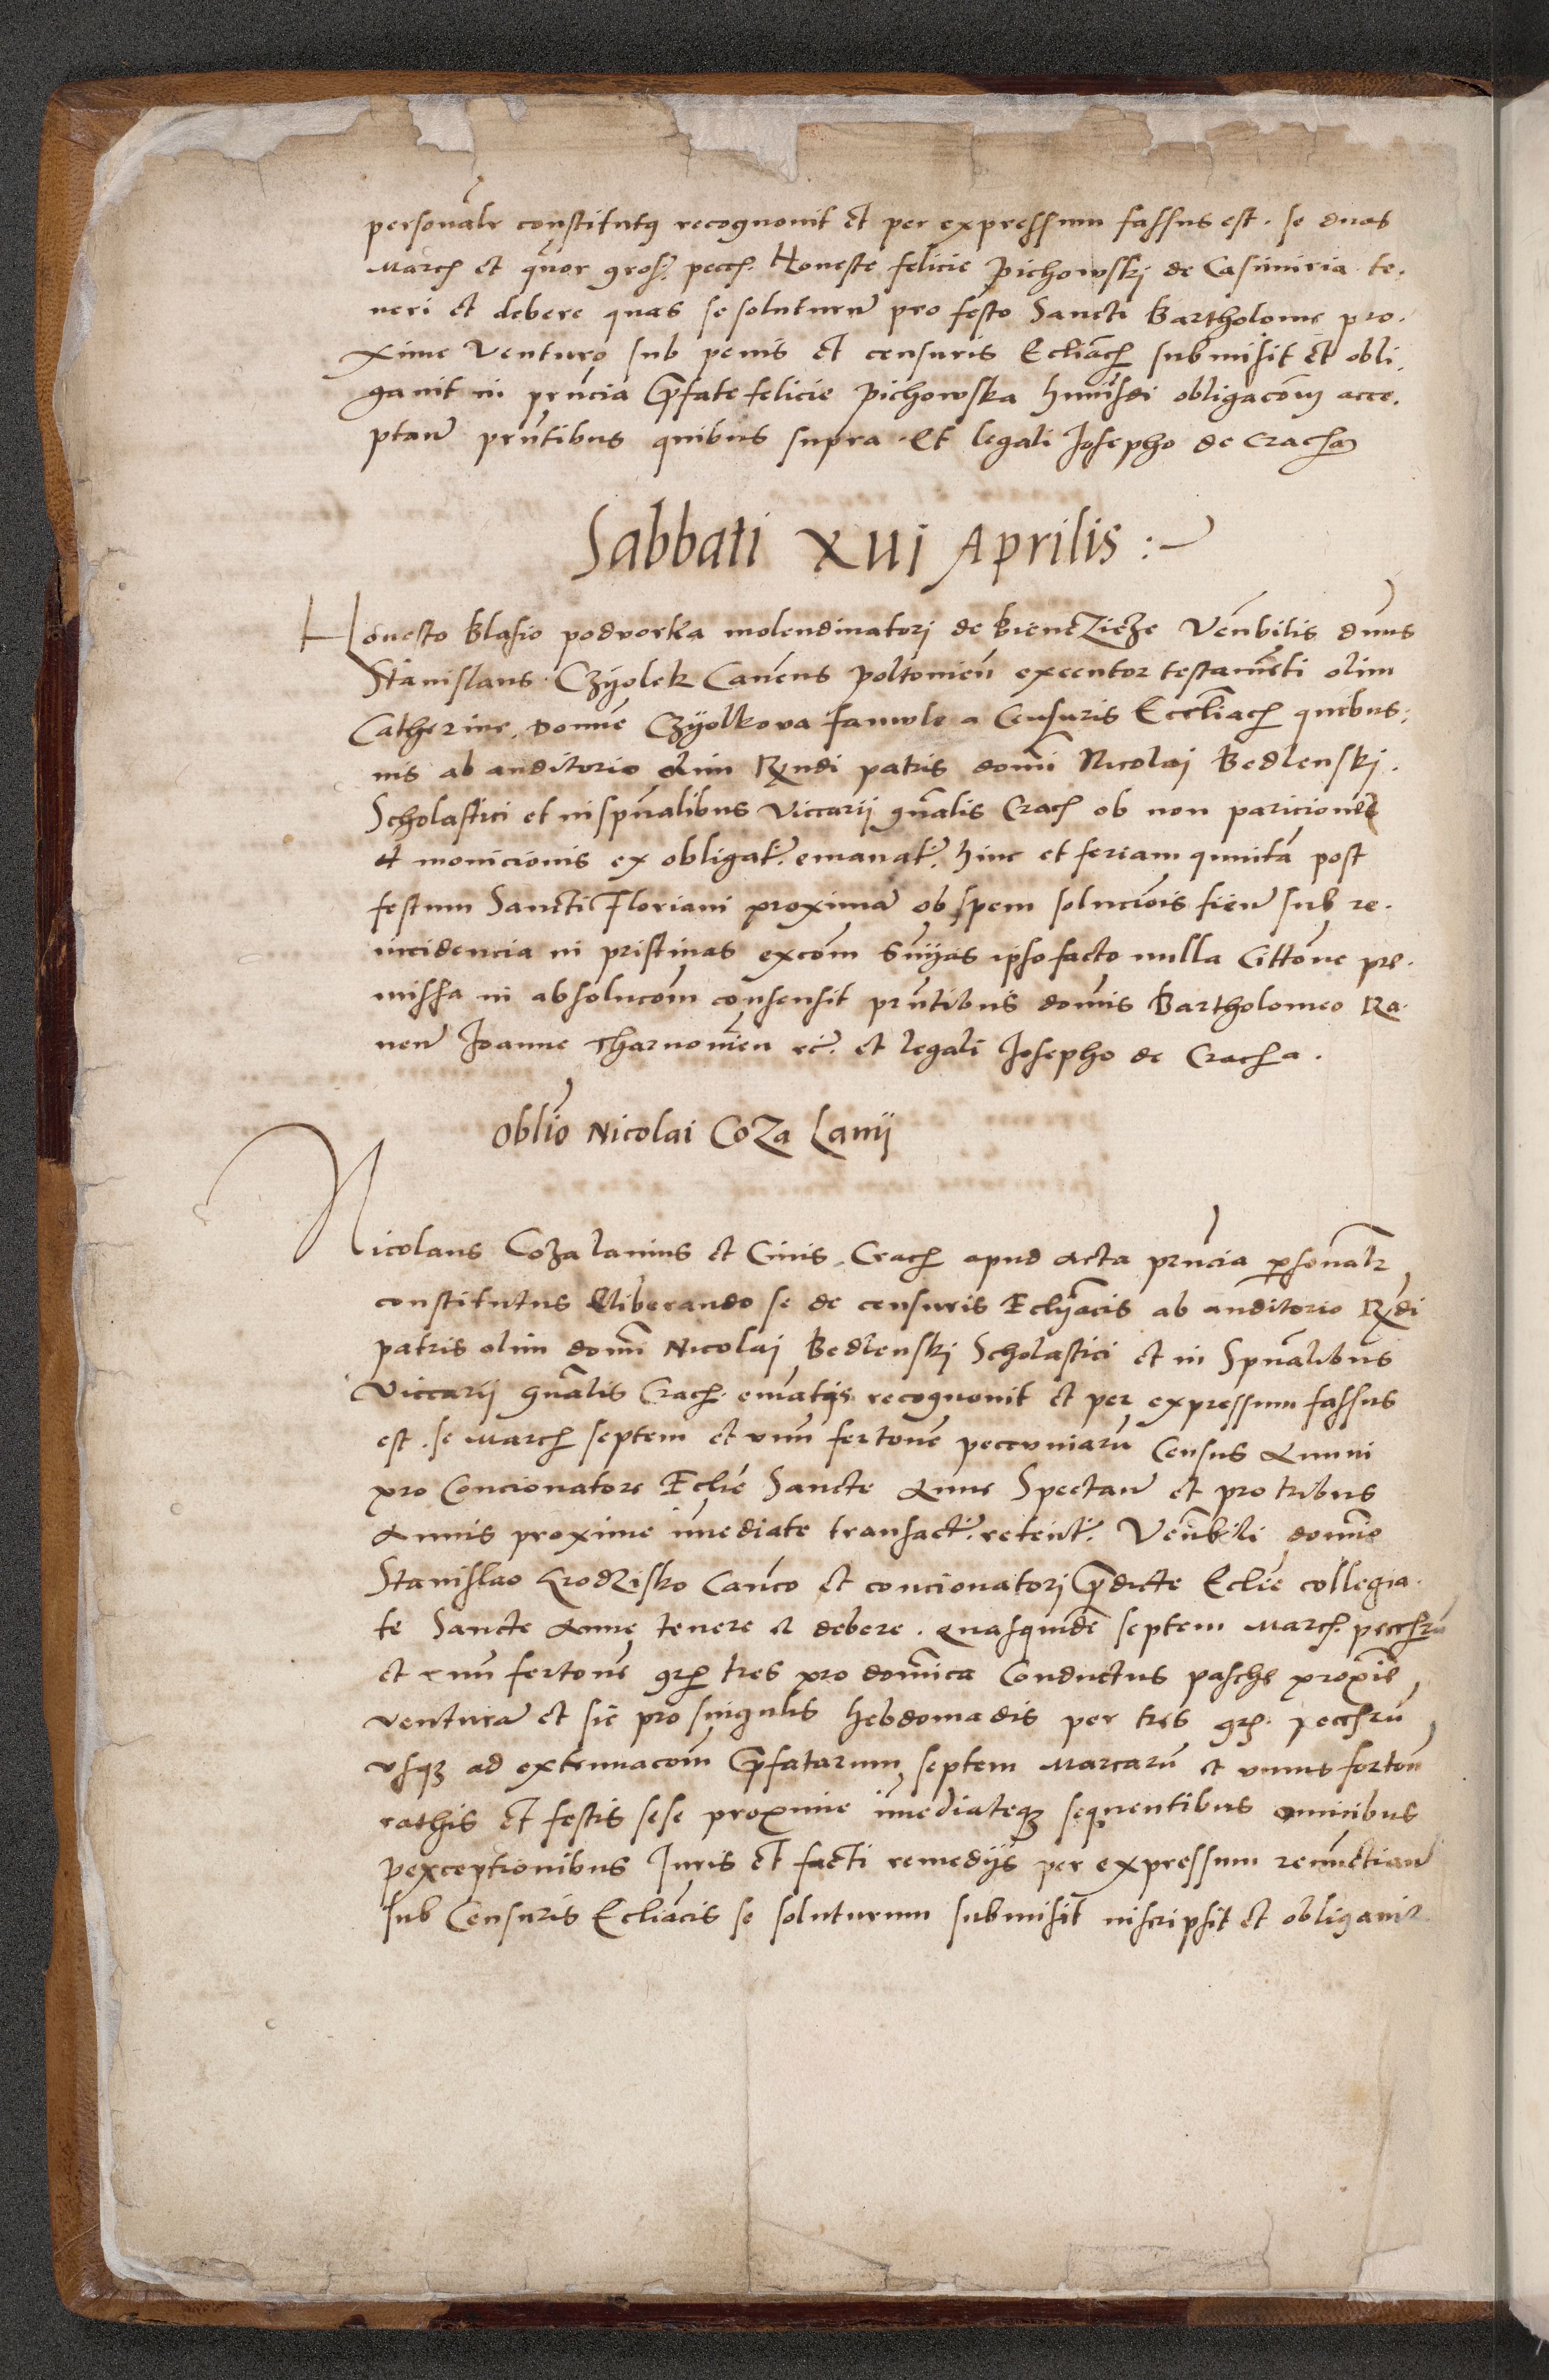 personalr constitutus recognovit et per expressum fassus est. se duas
March et quor gros. pecch. Honeste felicie Pichowskj de Casimiria te.
neri et debere quas se soluturum pro festo Sancti Bartholome pro.
xime Venturo sub penis et censuris Ecliach submisit et obli.
gavit in prncia pfate felicie Pichowska hmōi obligacōm acce.
ptan prntibus quibus supra. Et legali Josepho de Crach
Sabbati XVI Aprilis :~
Honesto Blasio podvorka molendinatorj de bienczicze Venbilis dnus
Stanislaus Czyolek Canens poltonien executor testamēti olim
Catherine. Domne Czyolkova famule a Censuris Eccliach quibus.
vis ab auditorio olim Rndi patris domi Nicolaj Bedlenskj.
Scholastici et in spnalibus Viccarii gnalis Crach ob non paricionē
et monicionis ex obligat. emanat. hinc et feriam quintā post
festum Sancti Floriani proximā ob spem soluciōis fien sub re.
incidencia in pristinas excōm snijas ipso facto nulla Cittōne pre.
missa in absolucōm consensit prntibus domis Bartholomeo Ra.
nen Joanne Tharnovien etc. et legali Josepho de Cracha.
Oblio Nicolai Coza Lanij
Nicolaus Coza lanius et Civis Crach apud Acta prncia psonalr
constitutus liberando se de censuris Eclyacis ab auditorio Rdi
patris olim domi Nicolaj Bedlenskj Scholastici et in Spnalibus
Viccarij gnalis Crach. emātis recognovit et per expressum fassus
est. se March septem et vnū fertonē peccuniarū Census Annui
pro Concionatore Eclie Sancte Anne Spectan et pro tribus
Annis proxime imediate transact. retent. Venbili domō
Stanislao Krodzisko Canco et concionatorj pdicte Eclie collegia.
te Sancte Anne tenere et debere. quasquidē septem March. peccharū
et vnū fertonē grh tres pro domīca Conductus pasche proxīe
ventura et sic pro singulis hebdomadis per tres grh. peccharū
vsqz ad extenuacōm pfatarum septem Marcarū et vnius ferton
rathis et festis sese proxime imediateqz sequentibus omnibus
pexceptionibus Juris et facti remedijs per expressum renūctian
sub Censuris Ecliacis se soluturum submisit inscripsit et obligavit.